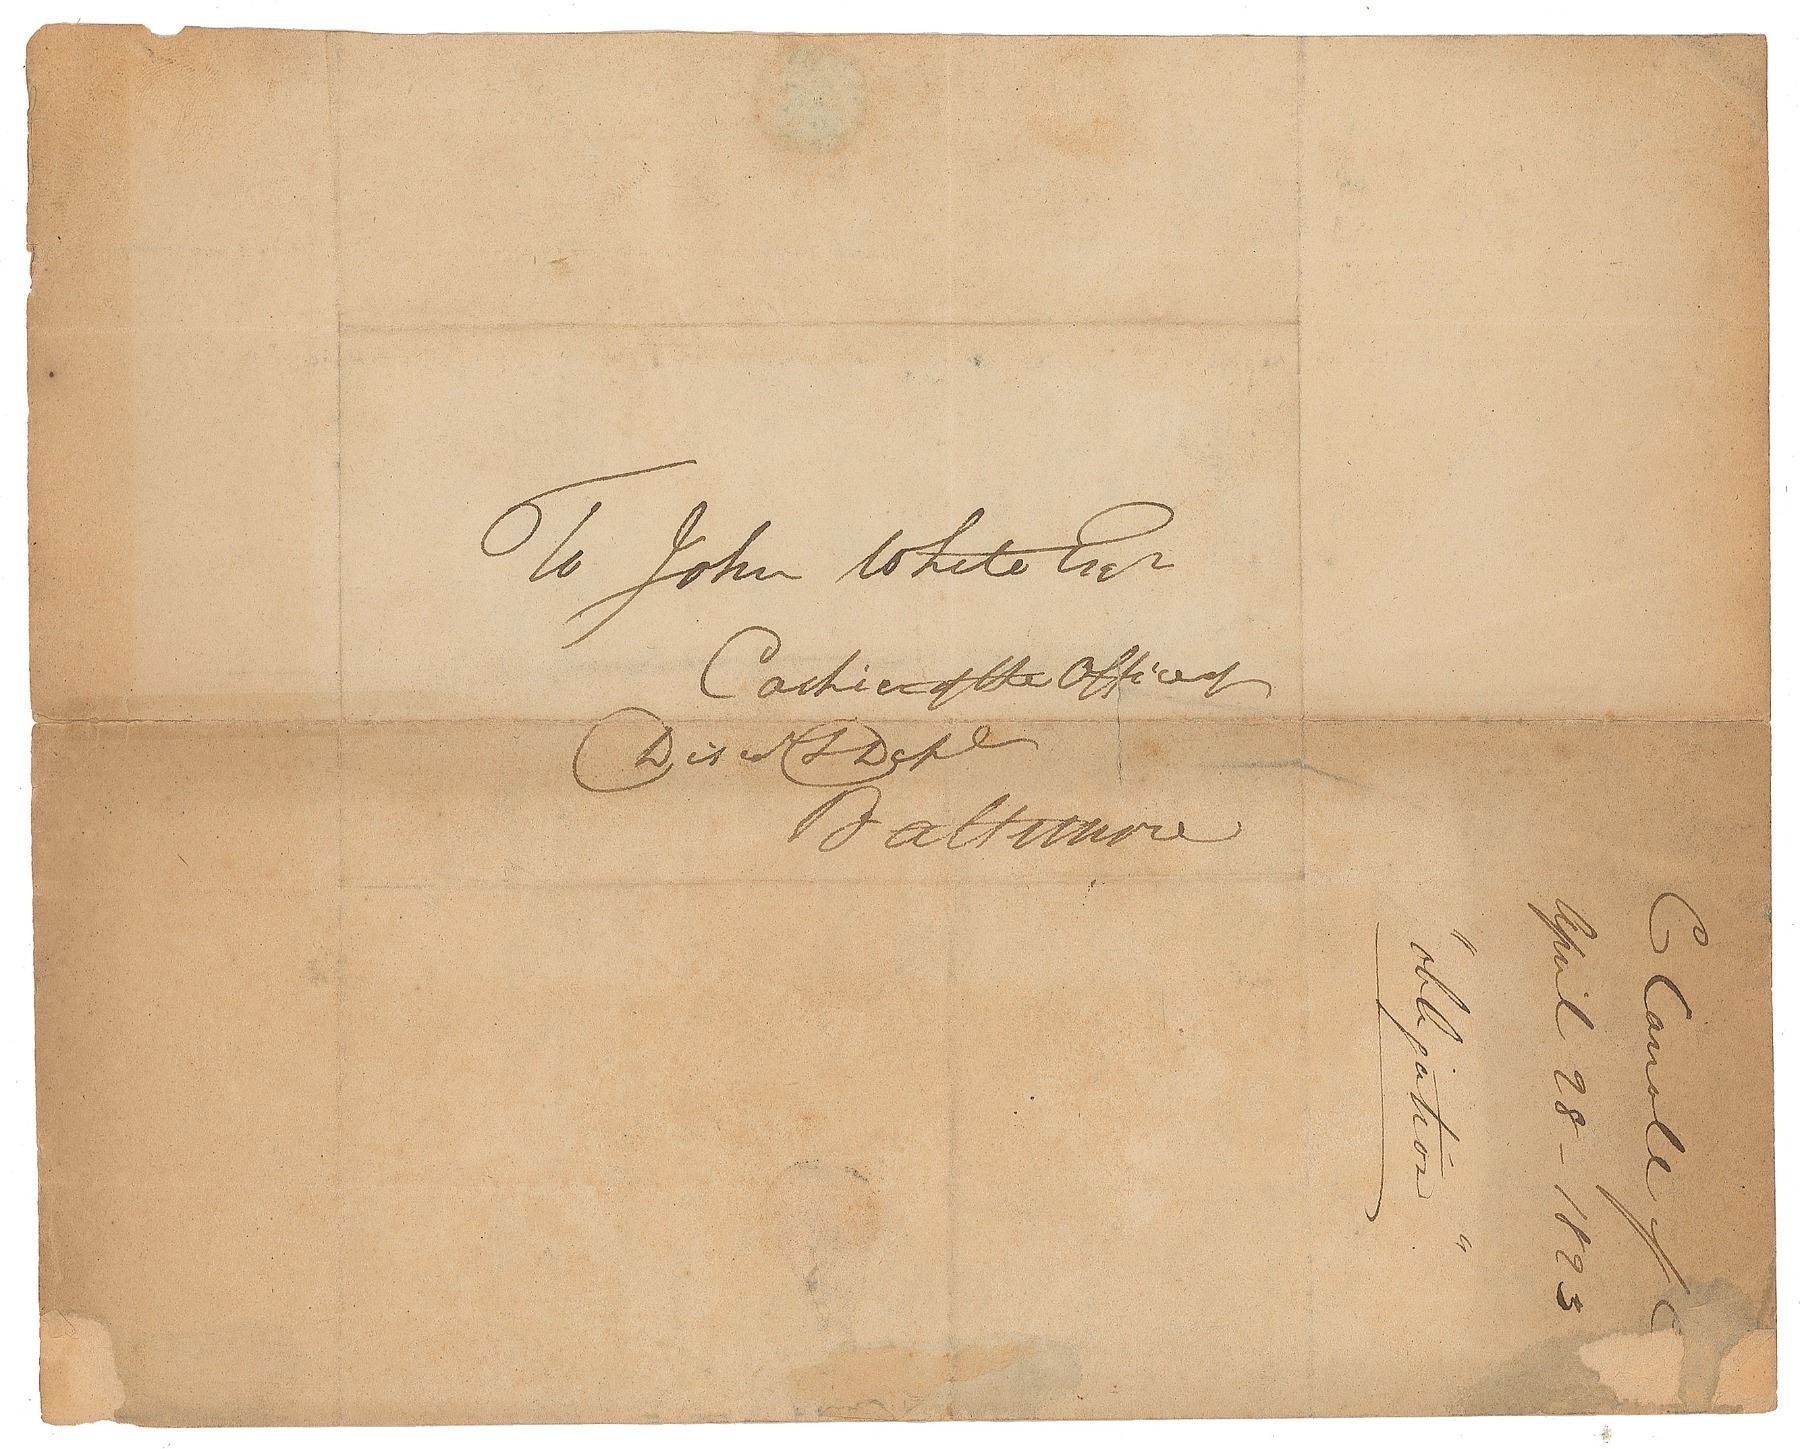 To John White Esqr
Cashier of the Office of
Disct & Dept
Baltimore
C Carroll of C
April 28 - 1823
"obligation"